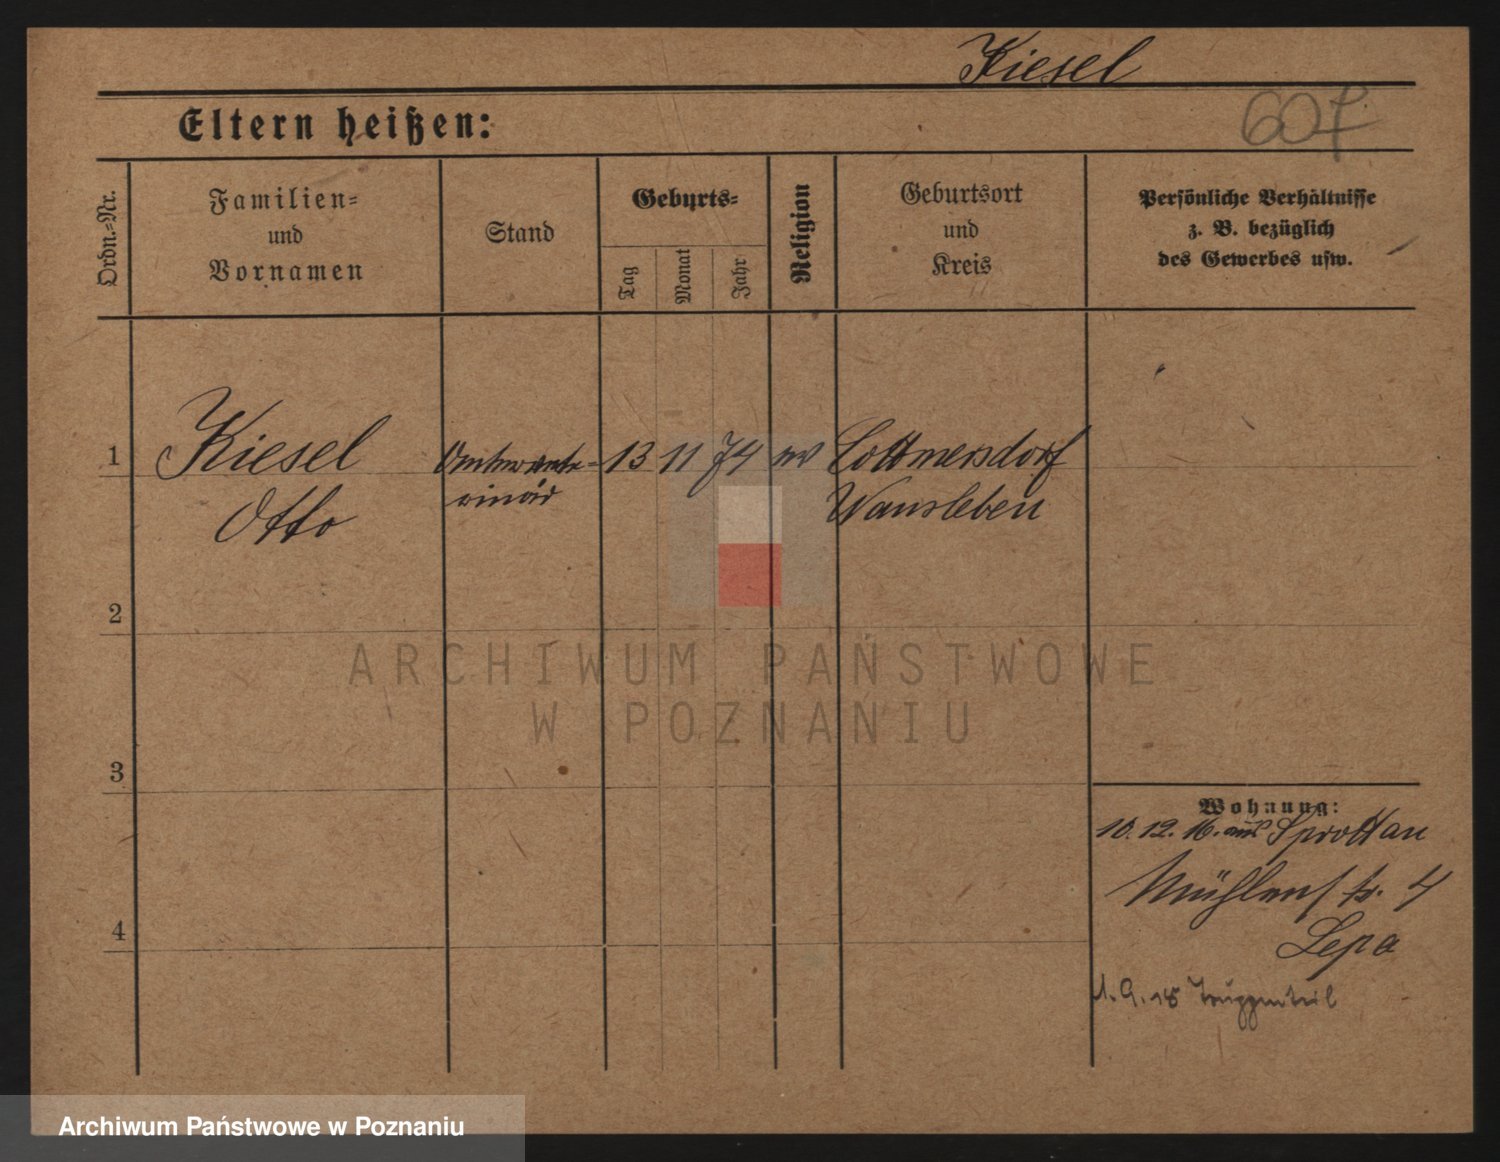 Kiesel
607
Eltern heißen:
Ordn.-Nr.
Familien-
und
Vornamen
Stand
Geburts-
Tag
Monat
Jahr
Religion
Geburtsort
und
Kreis
Persönliche Verhältnisse
z. B. bezüglich
des Gewerbes usw.
1
Kiesel
Otto
13 11 74 ev
Cottmersdorf
Wansleben
2
3
4
Wohnung:
10.12.16. aus Sprottau
Mühlenstr. 4
Lepa
1.9.18 Truppenteil
ARCHIWUM PAŃSTWOWE
W POZNANIU
Archiwum Państwowe w Poznaniu